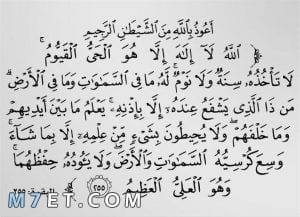 أَعُوذُ بِٱللَّهِ مِنَ ٱلشَّيْطَٰنِ ٱلرَّجِيمِ
ٱللَّهُ لَآ إِلَٰهَ إِلَّا هُوَ ٱلْحَىُّ ٱلْقَيُّومُ ۚ
لَا تَأْخُذُهُۥ سِنَةٌ وَلَا نَوْمٌ ۚ لَّهُۥ مَا فِى ٱلسَّمَٰوَٰتِ وَمَا فِى ٱلْأَرْضِ ۗ
مَن ذَا ٱلَّذِى يَشْفَعُ عِندَهُۥٓ إِلَّا بِإِذْنِهِۦ ۚ يَعْلَمُ مَا بَيْنَ أَيْدِيهِمْ
وَمَا خَلْفَهُمْ ۖ وَلَا يُحِيطُونَ بِشَىْءٍ مِّنْ عِلْمِهِۦٓ إِلَّا بِمَا شَآءَ ۚ
وَسِعَ كُرْسِيُّهُ ٱلسَّمَٰوَٰتِ وَٱلْأَرْضَ ۖ وَلَا يَـُٔودُهُۥ حِفْظُهُمَا ۚ
وَهُوَ ٱلْعَلِىُّ ٱلْعَظِيمُ ٢٥٥ البقرة: ٢٥٥
M7ET.COM